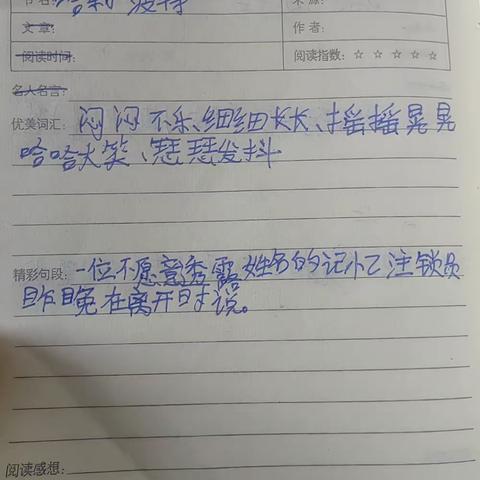 书名: 哈利 波特
来源:
文章:
作者:
阅读时间:
阅读指数: ☆ ☆ ☆ ☆ ☆
名人名言:
优美词汇: 闷闷不乐、细细长长、摇摇晃晃
哈哈大笑、瑟瑟发抖
精彩句段: 一位不愿意秀露姓名的记忆注销员
昨晚在离开时说。
阅读感想: